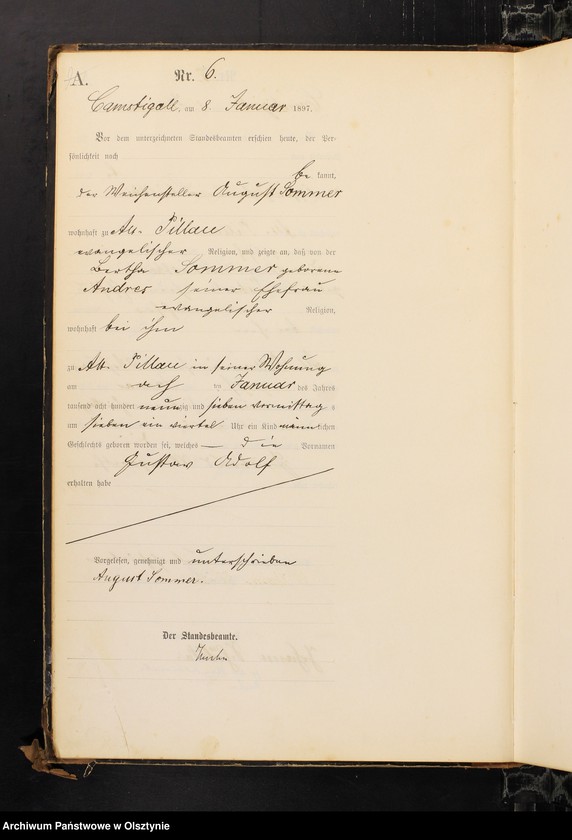 A.
Nr. 6.
Camstigall, am 8. Januar 1897.
Vor dem unterzeichneten Standesbeamten erschien heute, der Per-
sönlichkeit nach
be kannt,
der Weichensteller August Sommer
wohnhaft zu Alt-Pillau
evangelischer Religion, und zeigte an, daß von der
Bertha Sommer geborene
Andres seiner Ehefrau
evangelischer Religion,
wohnhaft bei ihm
zu Alt-Pillau in seiner Wohnung
am Januar des Jahres
tausend acht hundert neunzig und sieben vormittags
um sieben ein viertel Uhr ein Kind männlichen
Geschlechts geboren worden sei, welches — die Vornamen
Gustav Adolf
erhalten habe
Vorgelesen, genehmigt und unterschrieben
August Sommer.
Der Standesbeamte.
Archiwum Państwowe w Olsztynie